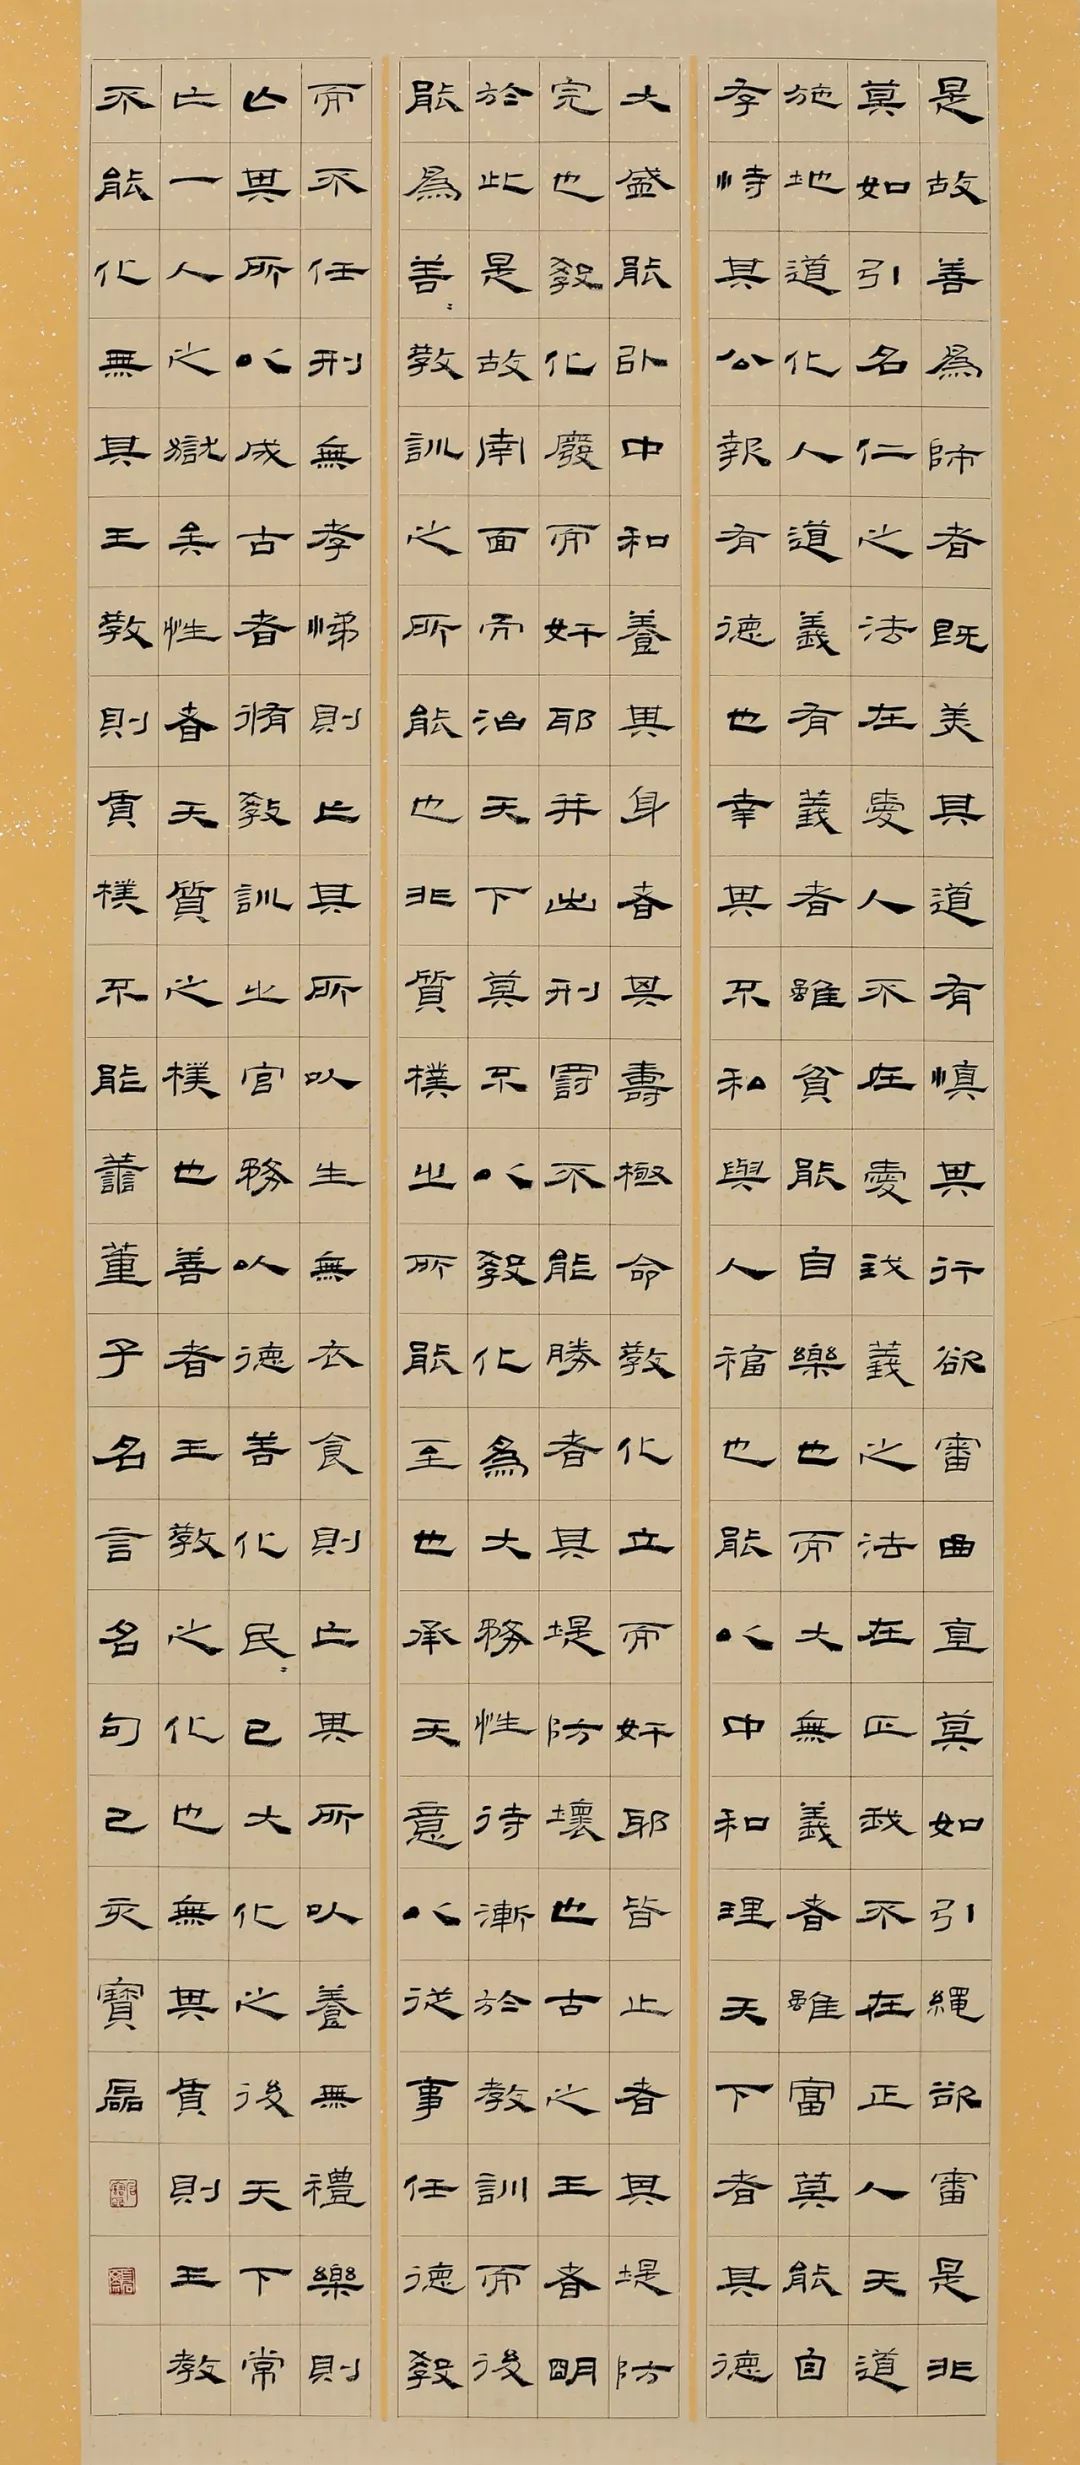 是故善為師者既美其道有慎其行欲審曲直莫如引繩欲審是非
莫如引名仁之法在愛人不在愛我義之法在正我不在正人天道
施地道化人道義有義者雖貧能自樂也而大無義者雖富莫能自
存恃其公報有德也幸其不私與人福也能以中和理天下者其德
大盛能以中和養其身者其壽極命教化立而奸耶皆止者其堤防
完也教化廢而奸耶并出刑罰不能勝者其堤防壞也古之王者明
於此是故南面而治天下莫不以教化為大務性待漸於教訓而後
能為善〻教訓之所能也非質樸之所能至也承天意以從事任德教
而不任刑無孝悌則亡其所以生無衣食則亡其所以養無禮樂則
亡其所以成古者脩教訓之官務以德善化民〻已大化之後天下常
亡一人之獄矣性者天質之樸也善者王教之化也無其質則王教
不能化無其王教則質樸不能善董子名言名句己亥寶磊